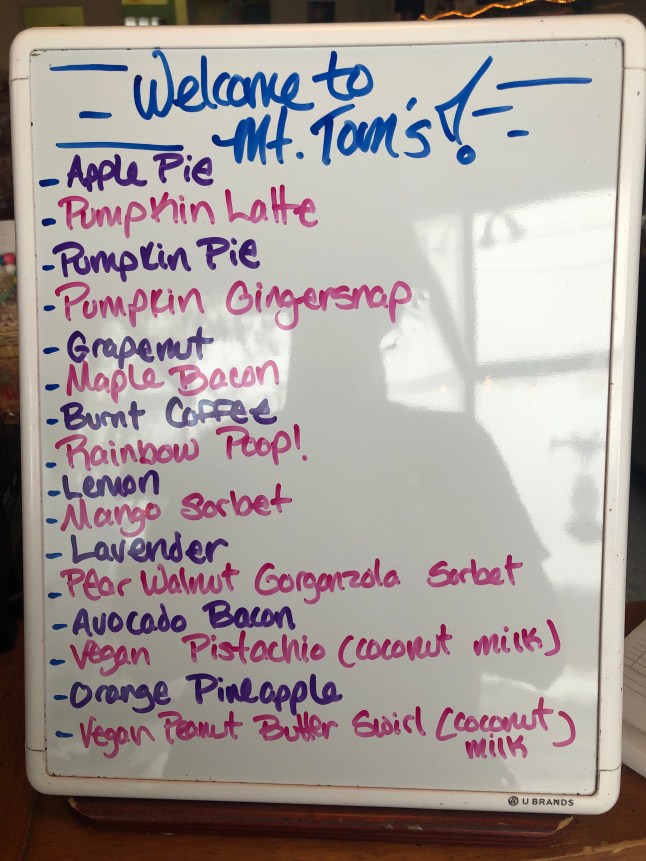 Welcome to
Mt. Tom's!
- Apple Pie
- Pumpkin Latte
- Pumpkin Pie
- Pumpkin Gingersnap
- Grapenut
- Maple Bacon
- Burnt Coffee
- Rainbow Poop!
- Lemon
- Mango Sorbet
- Lavender
- Pear Walnut Gorganzola Sorbet
- Avocado Bacon
- Vegan Pistachio (coconut milk)
- Orange Pineapple
- Vegan Peanut Butter Swirl (coconut
milk)
U BRANDS